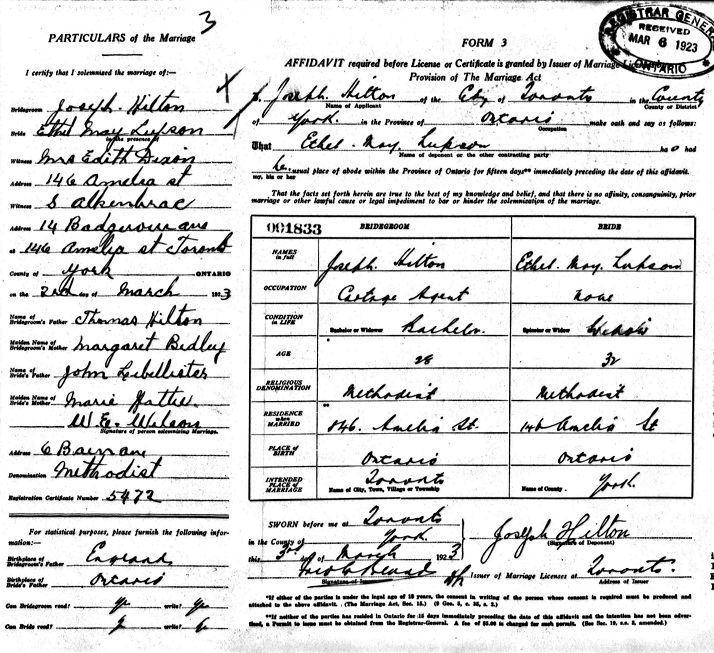 3
PARTICULARS of the Marriage
I certify that I solemnized the marriage of:—
Bridegroom Joseph Hilton
Bride Ethel May Lupson
in the presence of
Witness Mrs Edith Dixon
Address 146 Amelia st
Witness S Alkenbrac
Address 14 Badgerow ave
at 146 Amelia st Toronto
County of York ONTARIO
on the 2nd day of March 1923
Name of Bridegroom's Father Thomas Hilton
Maiden Name of Bridegroom's Mother Margaret
Name of Bride's Father John
Maiden Name of Bride's Mother Marie
W. E. Wilson
Signature of person solemnizing Marriage.
Address 6 Bain ave
Denomination Methodist
Registration Certificate Number 5472
For statistical purposes, please furnish the following information:—
Birthplace of Bridegroom's Father England
Birthplace of Bride's Father Ontario
Can Bridegroom read? write?
Can Bride read? write?
REGISTRAR GENERAL
RECEIVED
MAR 6 1923
ONTARIO
FORM 3
AFFIDAVIT required before License or Certificate is granted by Issuer of Marriage Licenses
Provision of The Marriage Act
I, Joseph Hilton of the City of Toronto in the County
Name of Applicant County or District
of York. in the Province of Ontario make oath and say as follows:
Occupation
That Ethel May Lupson had
Name of deponent or the other contracting party
her usual place of abode within the Province of Ontario for fifteen days** immediately preceding the date of this affidavit.
my, his or her
That the facts set forth herein are true to the best of my knowledge and belief, and that there is no affinity, consanguinity, prior
marriage or other lawful cause or legal impediment to bar or hinder the solemnization of the marriage.
001833 BRIDEGROOM BRIDE
NAMES in full Joseph Hilton Ethel May Lupson
OCCUPATION Cartage Agent None
CONDITION IN LIFE Bachelor or Widower Bachelor. Spinster or Widow Widow
AGE 28 32
RELIGIOUS DENOMINATION Methodist Methodist
RESIDENCE when MARRIED ** 846. Amelia St. 146 Amelia St
PLACE OF BIRTH Ontario Ontario
INTENDED PLACE OF MARRIAGE Toronto York.
Name of City, Town, Village or Township Name of County.
SWORN before me at Toronto
in the County of York.
this 3rd of March 1923
Joseph Hilton
(Signature of Deponent)
Signature of Issuer
Issuer of Marriage Licenses at Toronto.
Address of Issuer
*If either of the parties is under the legal age of 18 years, the consent in writing of the person whose consent is required must be produced and
attached to the above affidavit. (The Marriage Act, Sec. 15.) (9 Geo. 5, c. 35, s. 2.)
**If neither of the parties has resided in Ontario for 15 days immediately preceding the date of this affidavit and the intention has not been advertised,
a Permit to issue must be obtained from the Registrar-General. A fee of $5.00 is charged for such permit. (See Sec. 19, s.s. 3, amended.)